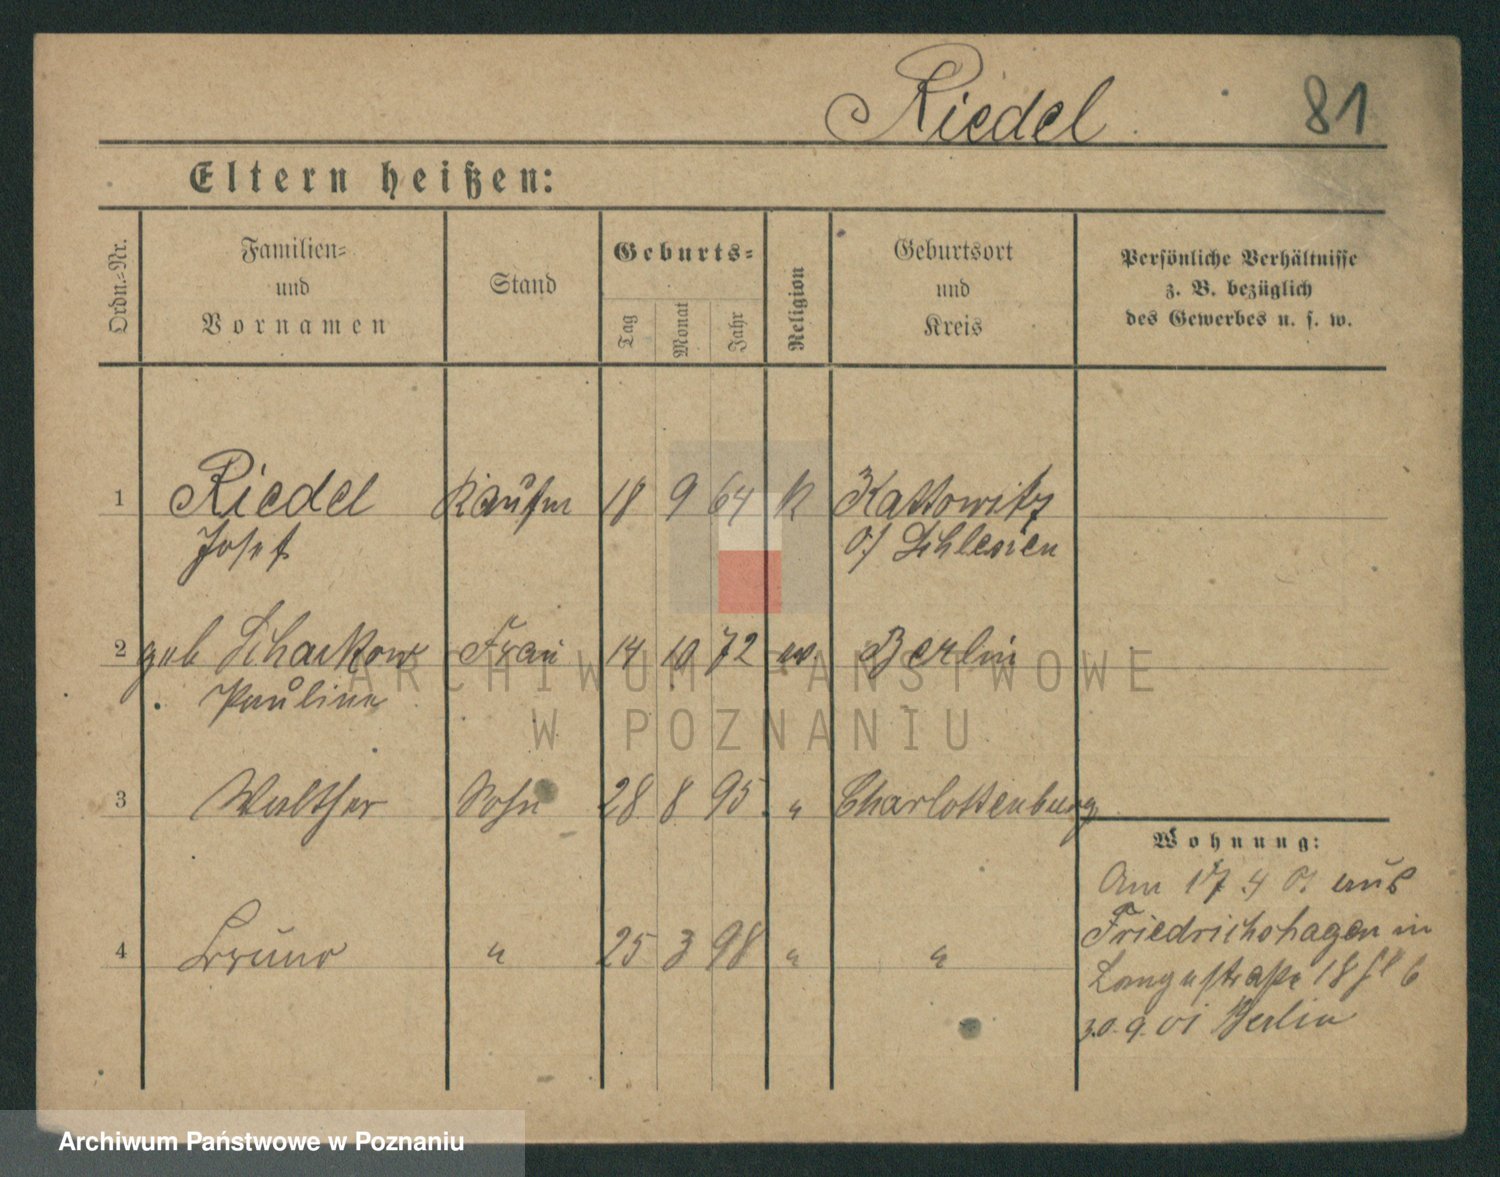 Riedel
81
Eltern heißen:
Ordn.-Nr.
Familien-
und
Vornamen
Stand
Geburts-
Tag
Monat
Jahr
Religion
Geburtsort
und
Kreis
Persönliche Verhältnisse
z. B. bezüglich
des Gewerbes u. s. w.
1 Riedel Kaufm 18 9 64 K Kattowitz
Josef O/ Schlesien
2 geb Frau 14 10 72 ev. Berlin
Pauline
ARCHIWUM PAŃSTWOWE
W POZNANIU
3 Walther Sohn 28 8 95 " Charlottenburg
Wohnung:
Am 17 4 01 aus
4 Bruno " 25 3 98 " "
Friedrichshagen in
Langestraße 18
30.9.01 Berlin
Archiwum Państwowe w Poznaniu